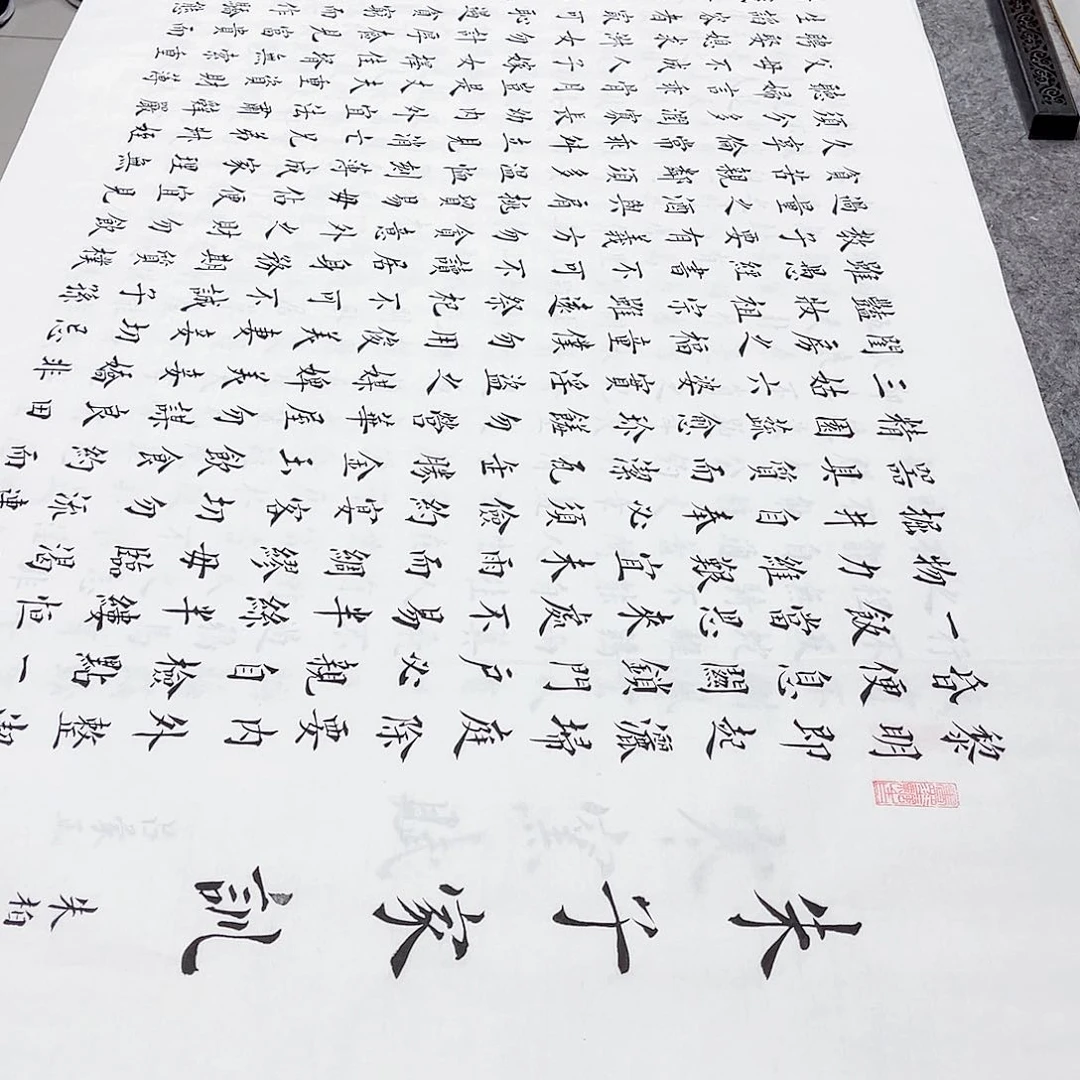 朱子家訓 朱柏
黎明即起灑掃庭除要內外整潔
昏便息關鎖門戶必親自檢點一
一飯當思來處不易半絲半縷恒
物力維艱宜未雨而綢繆毋臨渴
掘井自奉必須儉約宴客切勿流連
器具質而潔瓦缶勝金玉飲食約而
精園蔬愈珍饈勿營華屋勿謀良田
三姑六婆實淫盜之媒婢美妾嬌非
閨房之福童僕勿用俊美妻妾切忌
豔妝祖宗雖遠祭祀不可不誠子孫
雖愚經書不可不讀居身務期質樸
教子要有義方勿貪意外之財勿飲
過量之酒與肩挑貿易毋佔便宜見
貧苦親鄰須多溫恤刻薄成家理無
久享倫常乖舛立見消亡兄弟叔姪
須分多潤寡長幼內外宜法肅辭嚴
聽婦言乖骨月豈是丈夫重資財薄
父母不成人子嫁女擇佳婿無索重
聘娶媳求淑女勿計厚奩見富貴而
生諂容者最可恥貧窮而作驕態